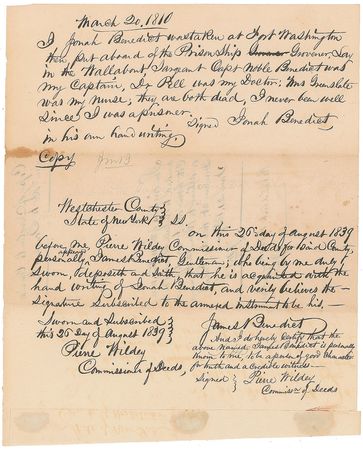 March 20, 1810
I Jonah Benedict was taken at Fort Washington
then put aboard of the Prison Ship Grovener, Lay
in the Wallabout, Sargeant Capt Noble Benedict was
my Captain, Dr Pell was my Doctor; Mrs
was my Nurse; they are both dead, I never been well
Since I was a prisoner.
Signed Jonah Benedict,
in his own hand writing.
Copy
Westchester County }
State of New York } SS
on this 26 day of August 1839
before me, Piere Wildey Commissioner of Deeds for said County,
personally appeared James Benedict, Gentleman; who being by me duly
Sworn, deposeth and Saith, that he is acquainted with the
hand writing of Jonah Benedict, and verily believes the
signature subscribed to the annexed instrument to be his
Sworn and Subscribed }
this 26 day of August 1839 }
Piere Wildey
Commissioner of Deeds,
James Benedict
And I do hereby Certify that the
above Named James Benedict is personally
known to me, to be a person of good Character
for truth and a credible witness—
Signed } Piere Wildey
Commissr of Deeds